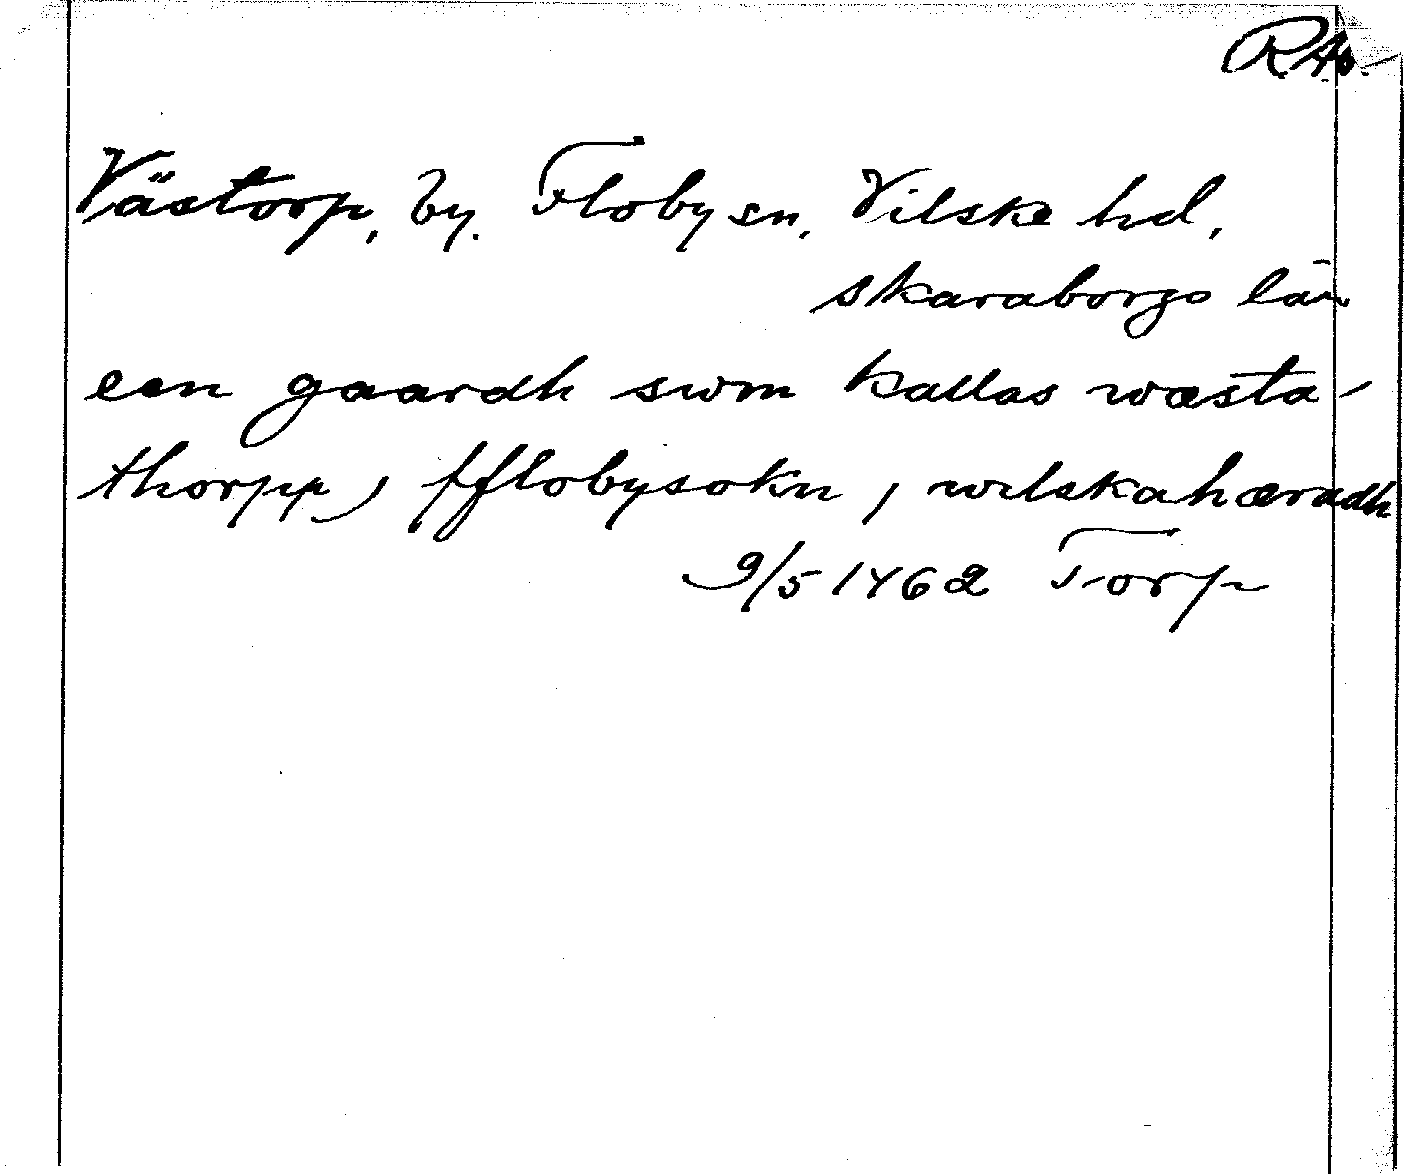 RAp.
Västorp, by. Floby sn, Vilske hd,
Skaraborgs län
een gaardh swm kallas wæsta-
thorpp j fflobysokn j wilskahæradh
9/5 1462 Torp